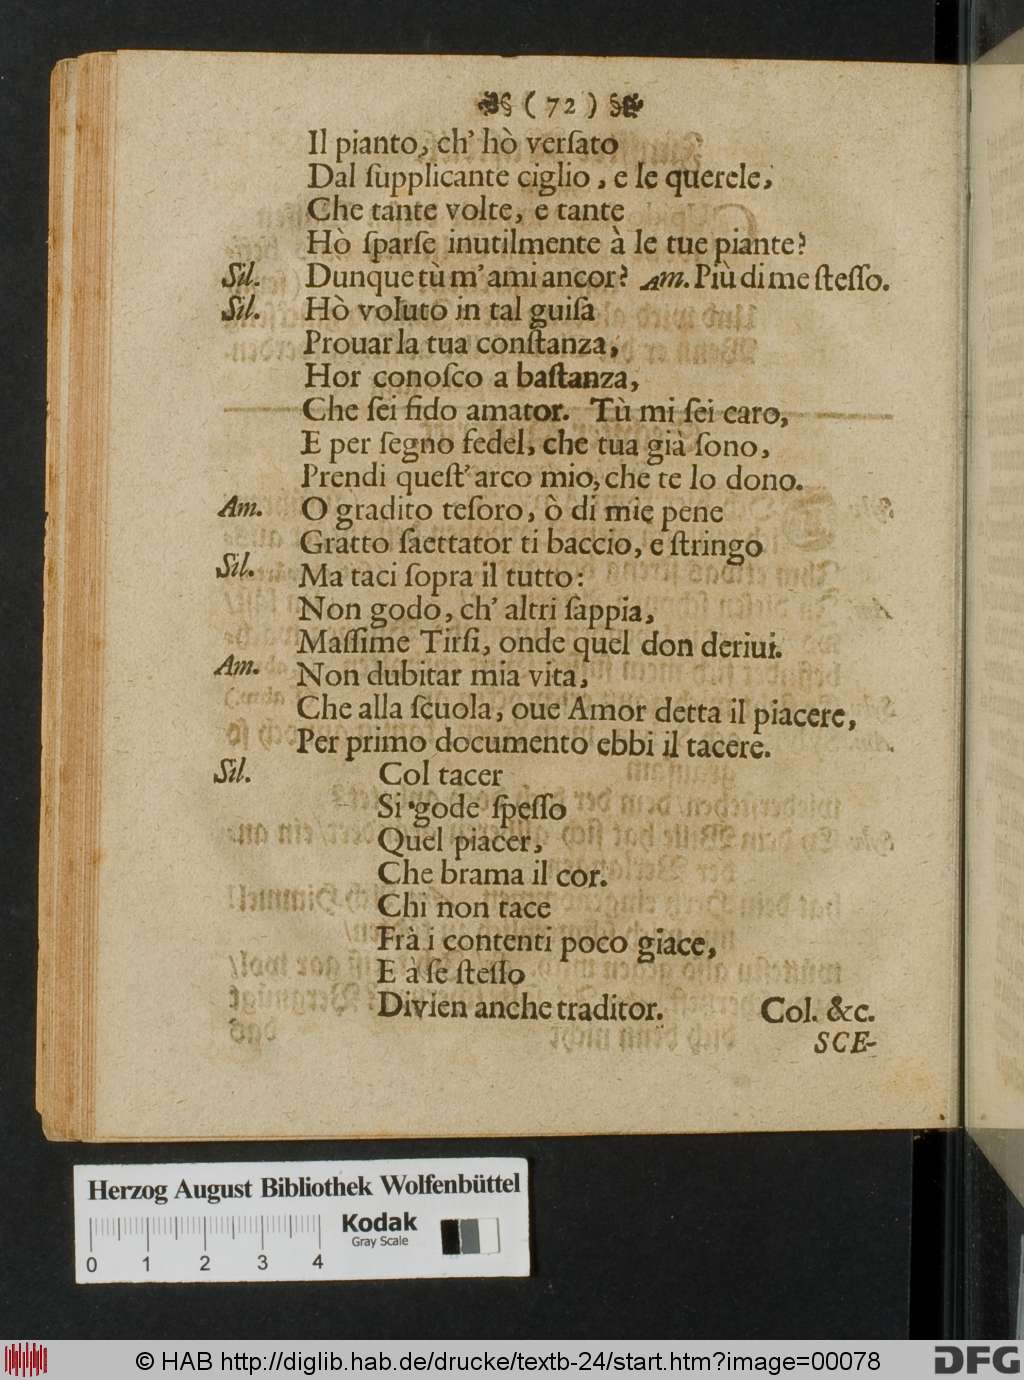 ( 72 )
Il pianto, ch' hò verſato
Dal ſupplicante ciglio, e le querele,
Che tante volte, e tante
Hò ſparſe inutilmente à le tue piante?
Sil. Dunque tù m' ami ancor? Am. Più di me ſteſſo.
Sil. Hò voluto in tal guiſa
Prouar la tua conſtanza,
Hor conoſco a baſtanza,
Che ſei fido amator. Tù mi ſei caro,
E per ſegno fedel, che tua già ſono,
Prendi queſt' arco mio, che te lo dono.
Am. O gradito teſoro, ò di mie pene
Gratto ſaettator ti baccio, e ſtringo
Sil. Ma taci ſopra il tutto:
Non godo, ch' altri ſappia,
Maſſime Tirſi, onde quel don deriui.
Am. Non dubitar mia vita,
Che alla ſcuola, oue Amor detta il piacere,
Per primo documento ebbi il tacere.
Sil. Col tacer
Si gode ſpeſſo
Quel piacer,
Che brama il cor.
Chi non tace
Frà i contenti poco giace,
E à ſe ſteſſo
Divien anche traditor. Col. &c.
SCE-
Herzog August Bibliothek Wolfenbüttel
Kodak
Gray Scale
0 1 2 3 4
© HAB http://diglib.hab.de/drucke/textb-24/start.htm?image=00078
DFG